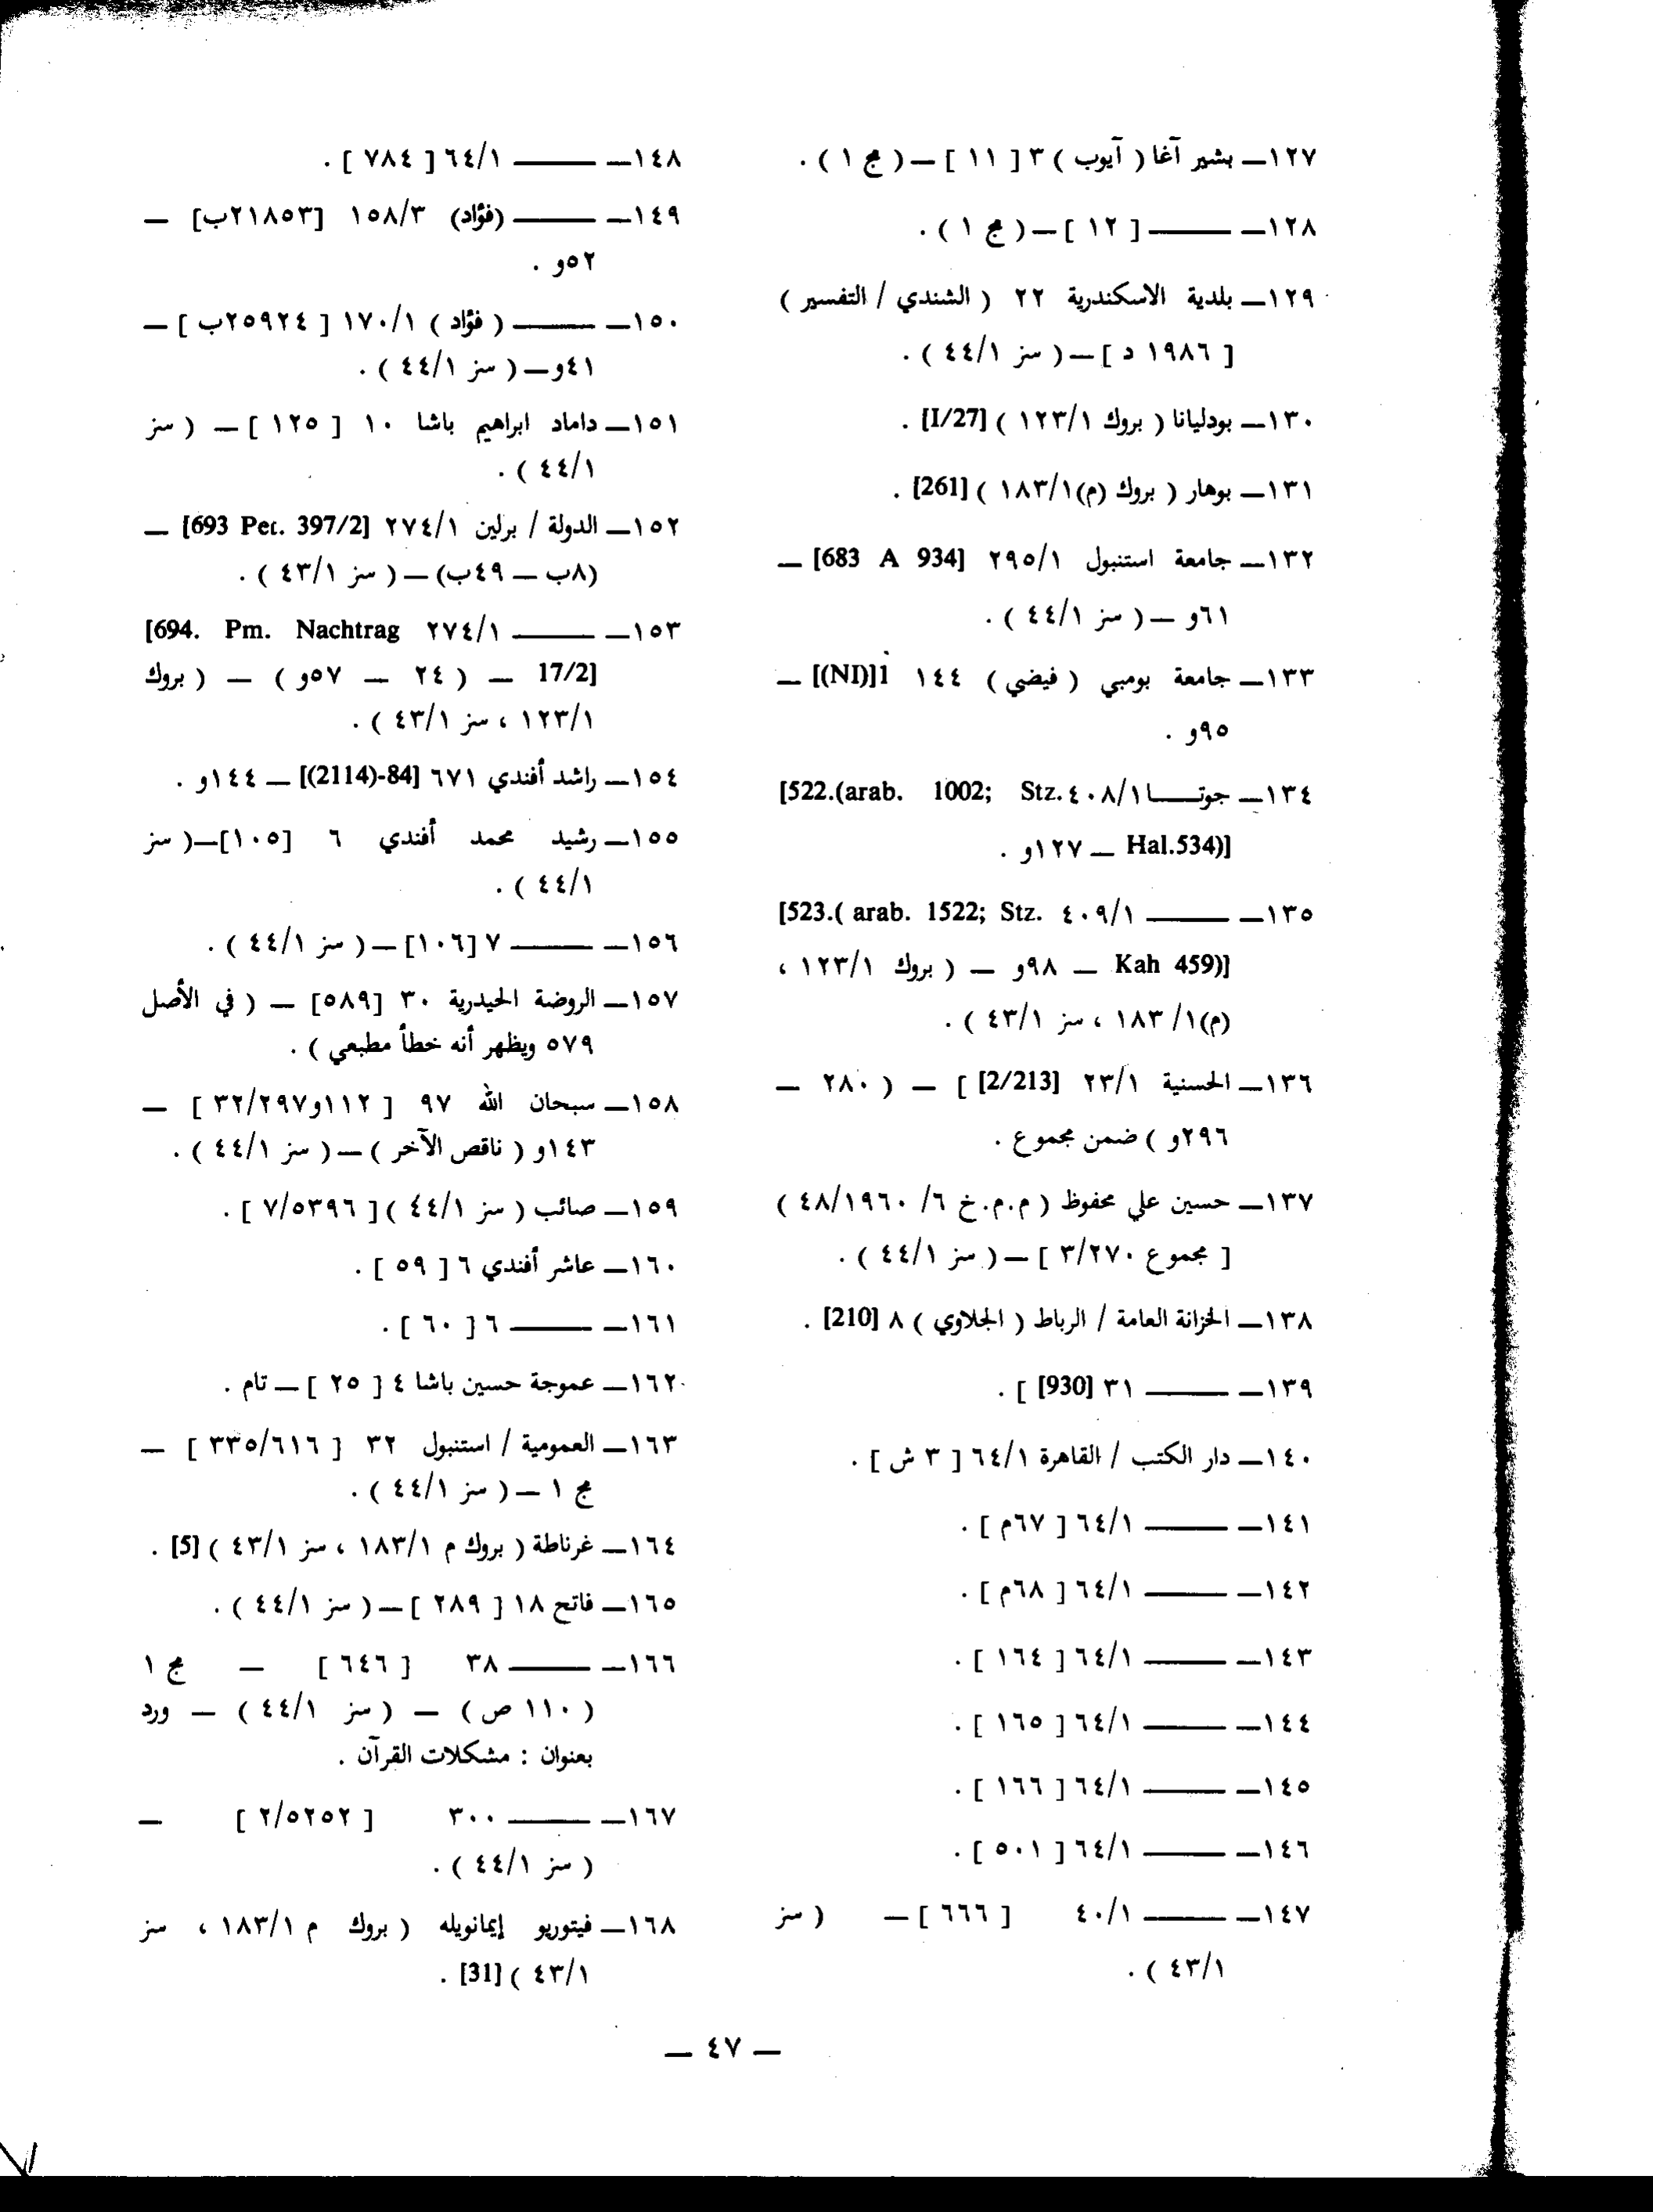 ١٢٧ــ بشير آغا ( آيوب ) ٣ [ ١١ ] ــ ( مج ١ ) .
١٢٨ــ ــــــــ [ ١٢ ] ــ ( مج ١ ) .
١٢٩ــ بلدية الاسكندرية ٢٢ ( الشندي / التفسير )
[ ١٩٨٦ د ] ــ ( سز ٤٤/١ ) .
١٣٠ــ بودليانا ( بروك ١٢٣/١ ) [I/27] .
١٣١ــ بوهار ( بروك (م)١٨٣/١ ) [261] .
١٣٢ــ جامعة استنبول ٢٩٥/١ [683 A 934] ــ
٦١و ــ ( سز ٤٤/١ ) .
١٣٣ــ جامعة بومبي ( فيضي ) ١٤٤ 1[(NI)] ــ
٩٥و .
١٣٤ــ جوتـــا ٤٠٨/١ [522.(arab. 1002; Stz.
Hal.534)] ــ ١٢٧و .
١٣٥ــ ــــــــ ٤٠٩/١ [523.( arab. 1522; Stz.
Kah 459)] ــ ٩٨و ــ ( بروك ١٢٣/١ ،
(م)١/ ١٨٣ ، سز ٤٣/١ ) .
١٣٦ــ الحسنية ٢٣/١ [2/213] ] ــ ( ٢٨٠ ــ
٢٩٦و ) ضمن مجموع .
١٣٧ــ حسين علي محفوظ ( م.م.خ ٦/ ٤٨/١٩٦٠ )
[ مجموع ٣/٢٧٠ ] ــ ( سز ٤٤/١ ) .
١٣٨ــ الخزانة العامة / الرباط ( الجلاوي ) ٨ [210] .
١٣٩ــ ــــــــ ٣١ [930] ] .
١٤٠ــ دار الكتب / القاهرة ٦٤/١ [ ٣ ش ] .
١٤١ــ ــــــــ ٦٤/١ [ ٦٧م ] .
١٤٢ــ ــــــــ ٦٤/١ [ ٦٨م ] .
١٤٣ــ ــــــــ ٦٤/١ [ ١٦٤ ] .
١٤٤ــ ــــــــ ٦٤/١ [ ١٦٥ ] .
١٤٥ــ ــــــــ ٦٤/١ [ ١٦٦ ] .
١٤٦ــ ــــــــ ٦٤/١ [ ٥٠١ ] .
١٤٧ــ ــــــــ ٤٠/١ [ ٦٦٦ ] ــ ( سز
٤٣/١ ) .
١٤٨ــ ــــــــ ٦٤/١ [ ٧٨٤ ] .
١٤٩ــ ــــــــ (فؤاد) ١٥٨/٣ [٢١٨٥٣ب] ــ
٥٢و .
١٥٠ــ ــــــــ ( فؤاد ) ١٧٠/١ [ ٢٥٩٢٤ب ] ــ
٤١و ــ ( سز ٤٤/١ ) .
١٥١ــ داماد ابراهيم باشا ١٠ [ ١٢٥ ] ــ ( سز
٤٤/١ ) .
١٥٢ــ الدولة / برلين ٢٧٤/١ [693 Pet. 397/2] ــ
(٨ب ــ ٤٩ب) ــ ( سز ٤٣/١ ) .
١٥٣ــ ــــــــ ٢٧٤/١ [694. Pm. Nachtrag
17/2] ــ ( ٢٤ ــ ٥٧و ) ــ ( بروك
١٢٣/١ ، سز ٤٣/١ ) .
١٥٤ــ راشد أفندي ٦٧١ [84-(2114)] ــ ١٤٤و .
١٥٥ــ رشيد محمد أفندي ٦ [١٠٥] ــ ( سز
٤٤/١ ) .
١٥٦ــ ــــــــ ٧ [١٠٦] ــ ( سز ٤٤/١ ) .
١٥٧ــ الروضة الحيدرية ٣٠ [٥٨٩] ــ ( في الأصل
٥٧٩ ويظهر أنه خطأ مطبعي ) .
١٥٨ــ سبحان الله ٩٧ [ ١١٢و٣٢/٢٩٧ ] ــ
١٤٣و ( ناقص الآخر ) ــ ( سز ٤٤/١ ) .
١٥٩ــ صائب ( سز ٤٤/١ ) [ ٧/٥٣٩٦ ] .
١٦٠ــ عاشر أفندي ٦ [ ٥٩ ] .
١٦١ــ ــــــــ ٦ [ ٦٠ ] .
١٦٢ــ عموجة حسين باشا ٤ [ ٢٥ ] ــ تام .
١٦٣ــ العمومية / استنبول ٣٢ [ ٣٣٥/٦١٦ ] ــ
مج ١ ــ ( سز ٤٤/١ ) .
١٦٤ــ غرناطة ( بروك م ١٨٣/١ ، سز ٤٣/١ ) [5] .
١٦٥ــ فاتح ١٨ [ ٢٨٩ ] ــ ( سز ٤٤/١ ) .
١٦٦ــ ــــــــ ٣٨ [ ٦٤٦ ] ــ مج ١
( ١١٠ ص ) ــ ( سز ٤٤/١ ) ــ ورد
بعنوان : مشكلات القرآن .
١٦٧ــ ــــــــ ٣٠٠ [ ٢/٥٢٥٢ ] ــ
( سز ٤٤/١ ) .
١٦٨ــ فيتوريو إيمانويله ( بروك م ١٨٣/١ ، سز
٤٣/١ ) [31] .
ــ ٤٧ ــ